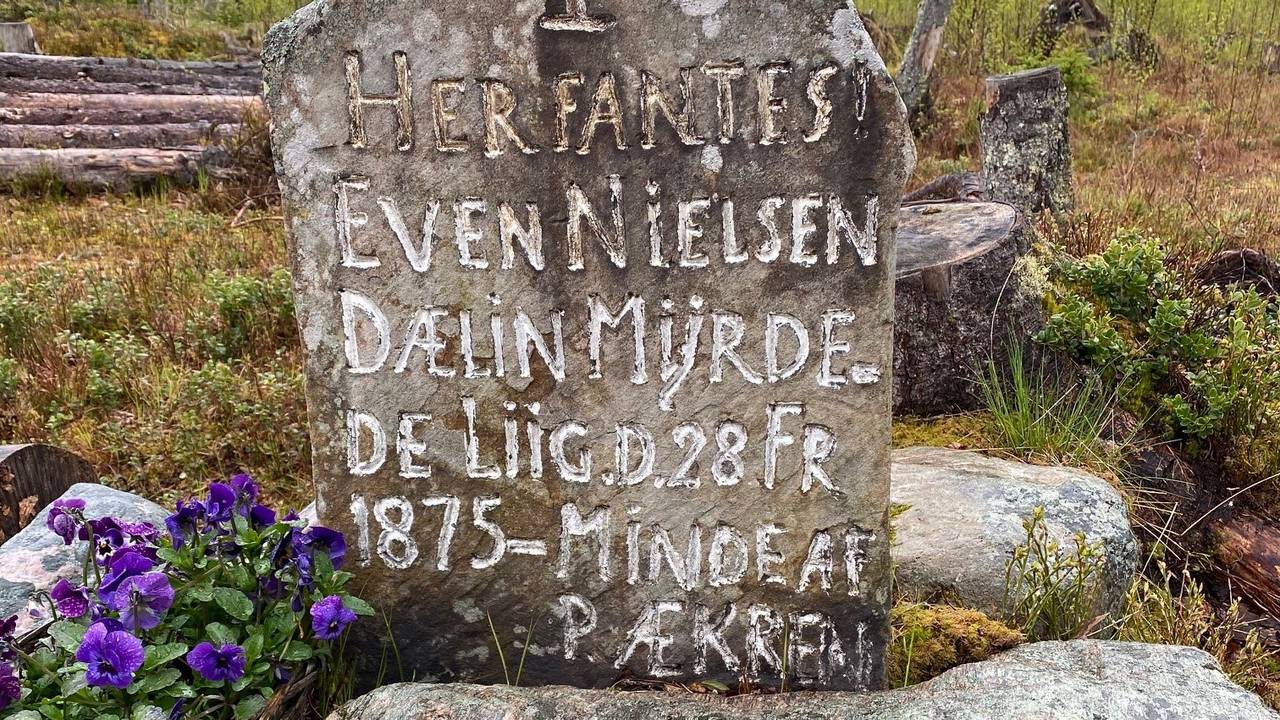 HER FANTES!
EVEN NIELSEN
DÆLIN MIJRDE-
DE LIIG.D.28.FR
1875-MINDE AF
P ÆKREN